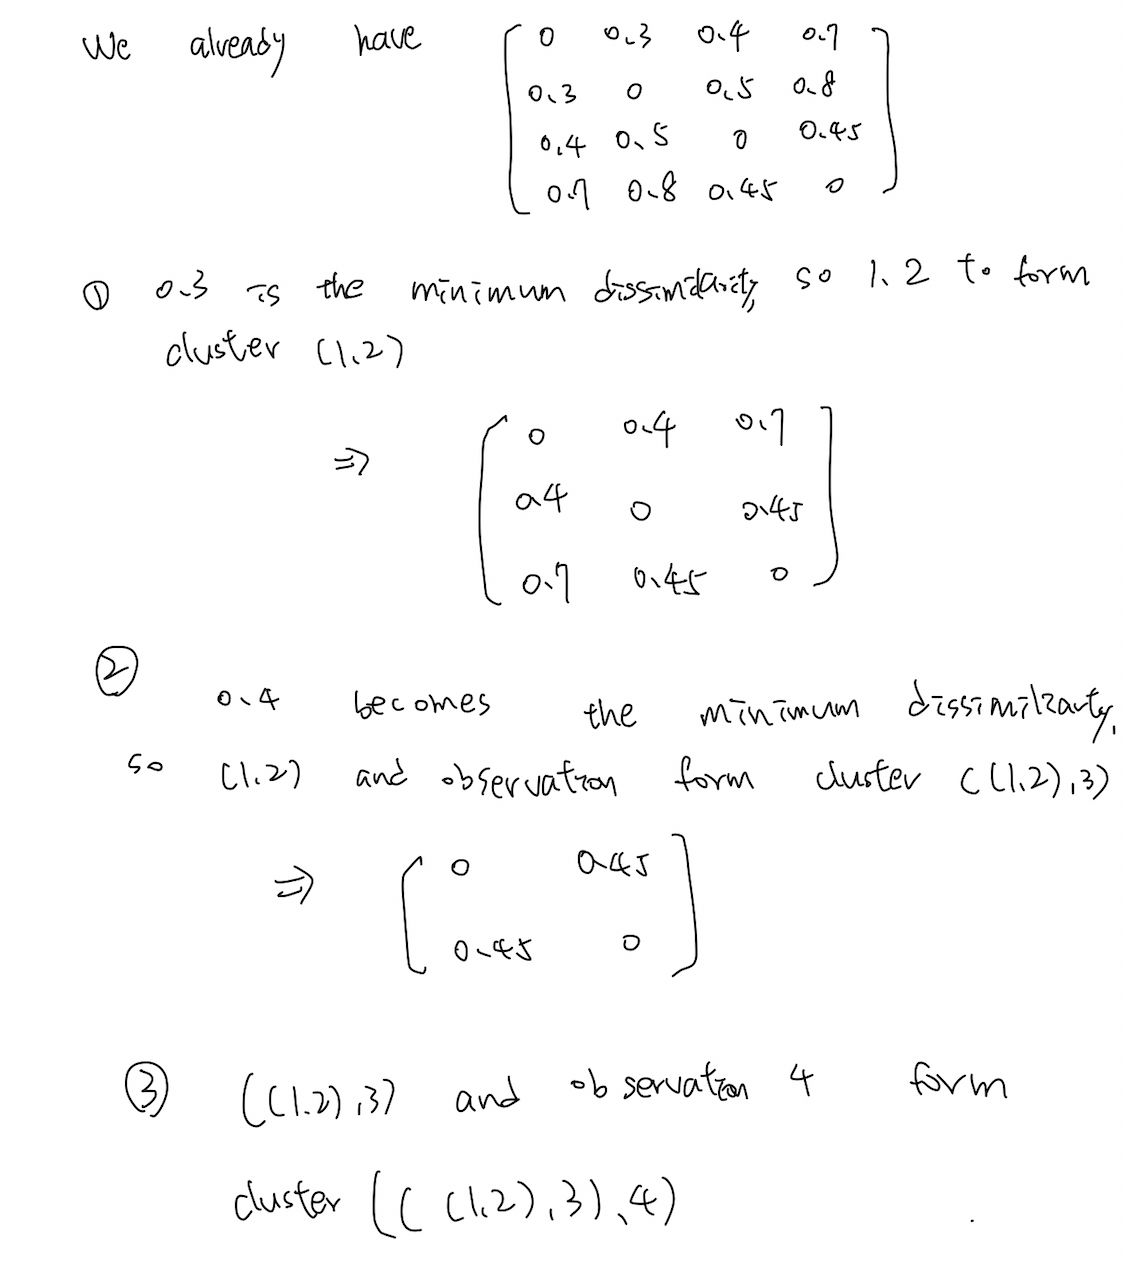 We already have [ 0 0.3 0.4 0.7
0.3 0 0.5 0.8
0.4 0.5 0 0.45
0.7 0.8 0.45 0 ]
① 0.3 is the minimum dissimilarity, so 1.2 to form
cluster (1.2)
⇒ [ 0 0.4 0.7
0.4 0 0.45
0.7 0.45 0 ]
②
0.4 becomes the minimum dissimilarty,
so (1.2) and observation form cluster ((1.2),3)
⇒ [ 0 0.45
0.45 0 ]
③ ((1.2),3) and observation 4 form
cluster (((1.2),3),4)